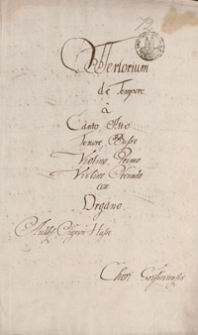 Offertorium
de Tempore
à
Canto, Alto
Tenore, Basso
Violino Primo
Violino Secundo
con
Organo
Signore Hasse
Chori